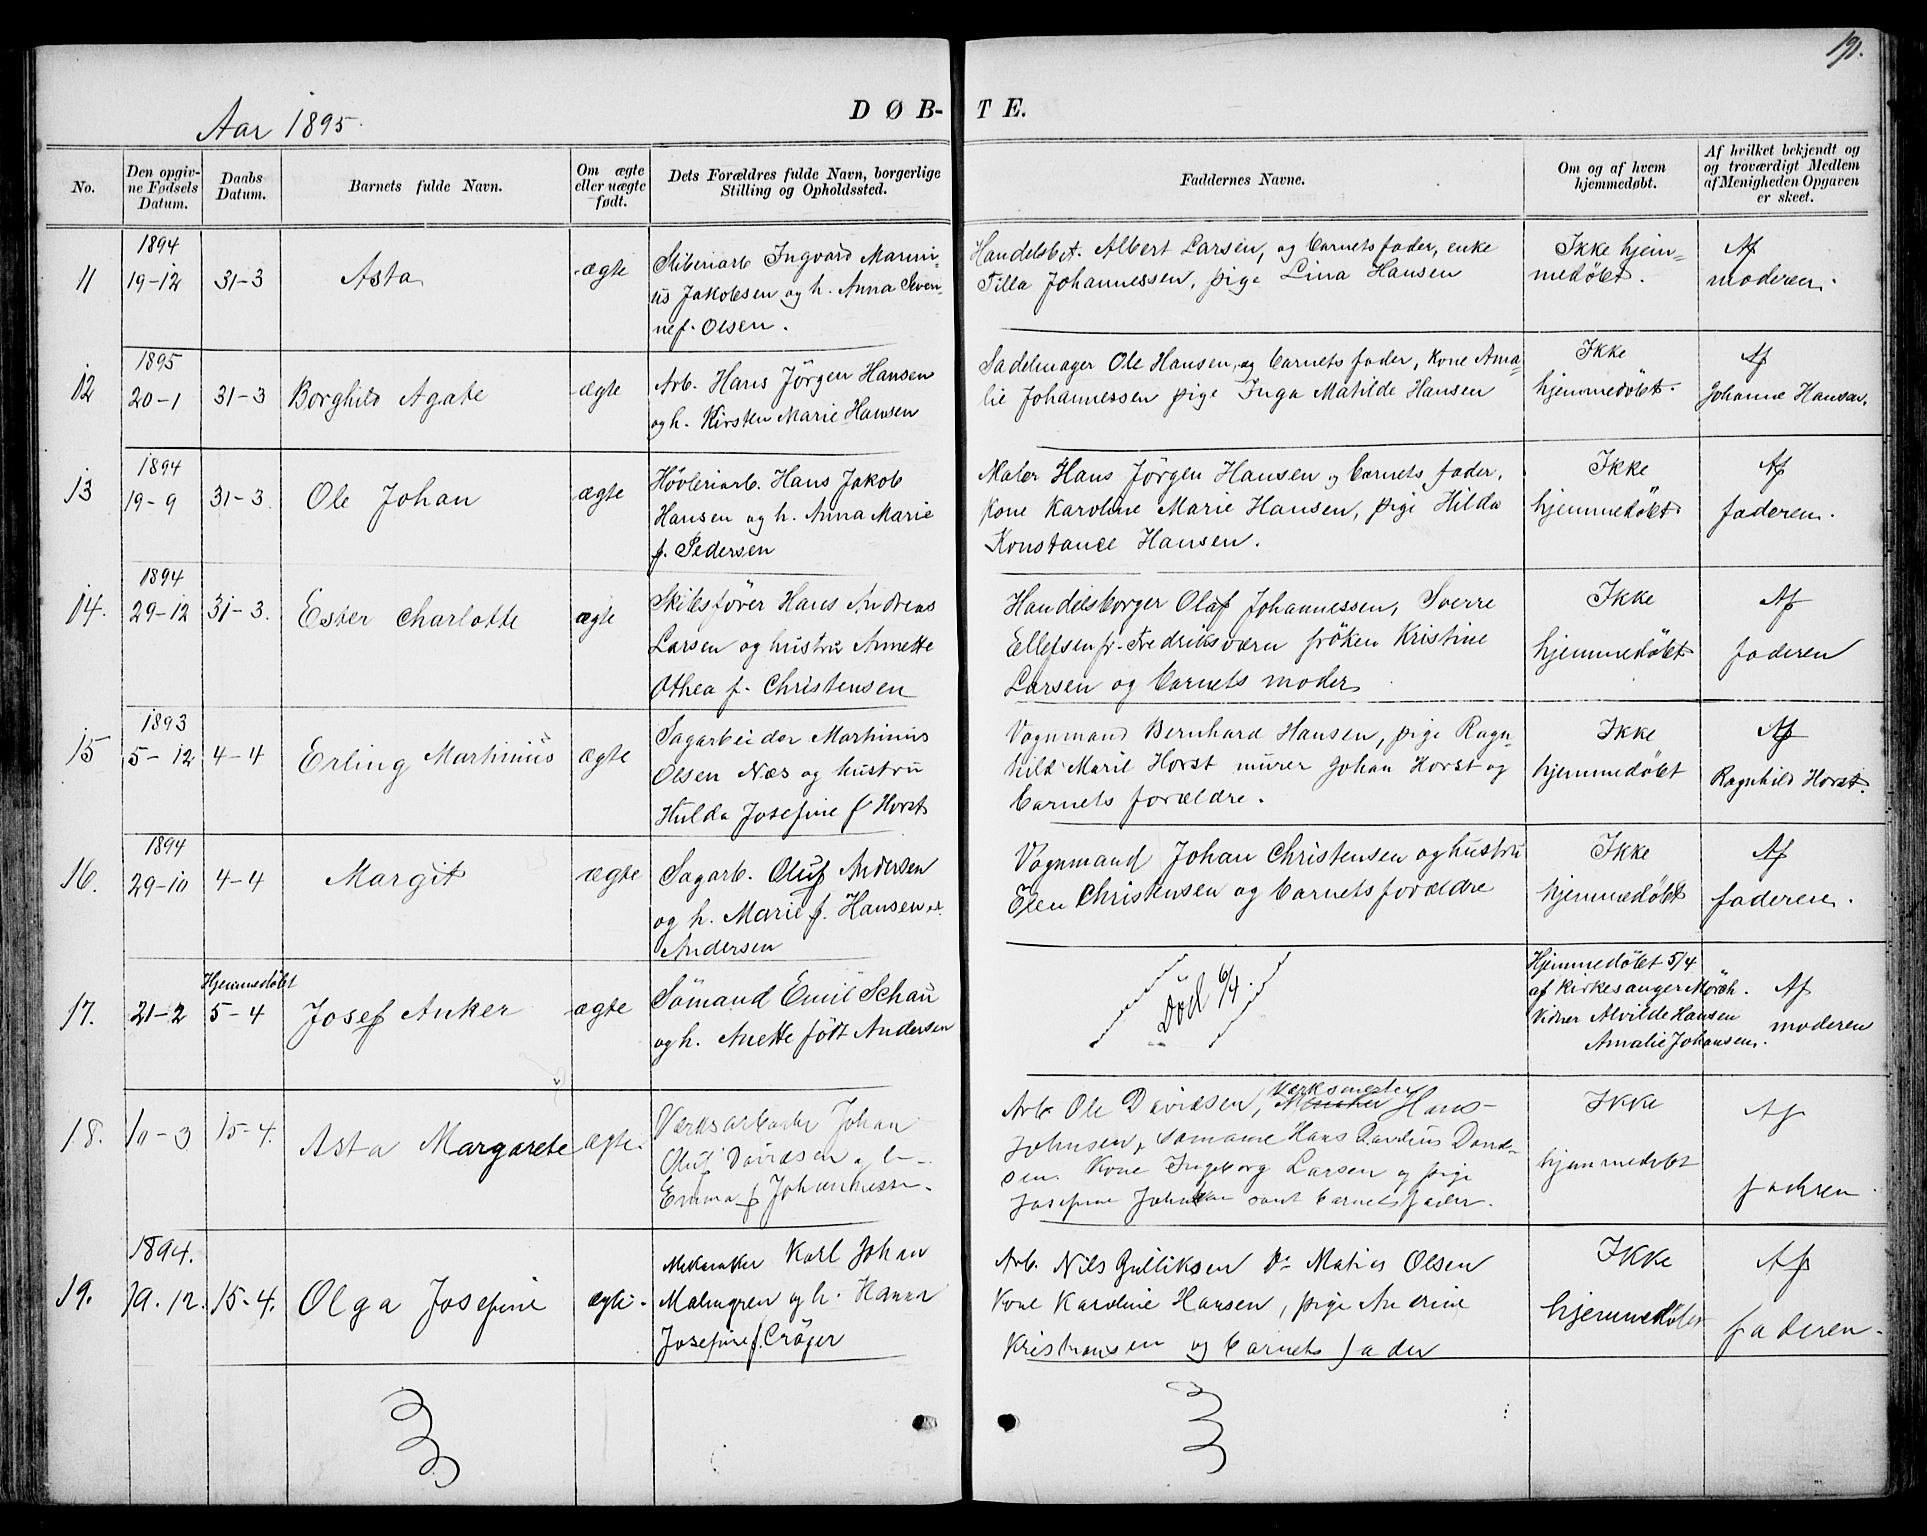 191.
Aar 1895.
DØB- TE.
No.
Den opgiv-
ne Fødsels
Datum.
Daabs
Datum.
Barnets fulde Navn.
Om ægte
eller uægte
født.
Dets Forældres fulde Navn, borgerlige
Stilling og Opholdssted.
Faddernes Navne.
Om og af hvem
hjemmedøbt.
Af hvilket bekjendt og
og troværdigt Medlem
af Menigheden Opgaven
er skeet.
11
1894
19-12
31-3
Asta
ægte
Sliberiarb Ingvard Marini-
us Jakobsen og h. Anna Seve-
ne f. Olsen.
Handelsbet. Albert Larsen, og barnets fader, enke
Tilla Johannessen, pige Lina Hansen
Ikke hjem-
medøbt.
Af
moderen.
12
1895
20-1
31-3
Borghild Agate
ægte
Arb. Hans Jörgen Hansen
og h. Kirsten Marie Hansen
Sadelmager Ole Hansen, og barnets fader, kone Ama-
lie Johannessen pige Inga Matilde Hansen
Ikke
hjemmedøbt.
Af
Johanne Hansen.
13
1894
19-9
31-3.
Ole Johan
ægte
Høvleriarb. Hans Jakob
Hansen og h. Anna Marie
f. Pedersen
Maler Hans Jørgen Hansen og barnets fader,
kone Karoline Marie Hansen, pige Hilda
Konstance Hansen.
Ikke
hjemmedøbt
Af
faderen.
14.
1894
29-12
31-3.
Ester Charlotte
ægte
Skibsfører Hans Andreas
Larsen og hustru Annette
Othea f. Christensen
Handelsborger Olaf Johannessen, Sverre
Ellefsen fr. Fredriksværn fröken Kristine
Larsen og barnets moder
Ikke
hjemmedøbt
Af
faderen
15
1893
5-12
4-4
Erling Martinius
ægte
Sagarbeider Martinius
Olsen Næs og hustru
Hulda Josefine f Horst
Vognmand Bernhard Hansen, pige Ragn-
hild Marie Horst murer Johan Horst og
barnets forældre.
Ikke
hjemmedøbt
Af
Ragnhild Horst.
16.
1894
29-10
4-4
Margit
ægte
Sagarb. Oluf Andersen
og h. Marie f. Hansen
Andersen
Vognmand Johan Christensen og hustru
Elen Christensen og barnets forældre
Ikke
hjemmedøbt
Af
faderen.
17.
21-2
Hjemmedøbt
5-4
Josef Anker
ægte
Sömand Emil Schau
og h. Anette født Andersen
Död 6/4.
Hjemmedøbt 5/4
af Kirkesanger Mørch.
Vidner Alvilde Hansen
Amalie Johansen.
Af
moderen
18.
10-3
15-4.
Asta Margarete
ægte.
Værksarbeider Johan
Oluf Davidsen og h.
Emma f Johannessen.
Værksmester
Arb. Ole Davidsen, Hans
Johnsen, sömand Hans David-
sen. Kone Ingeborg Larsen og pige
Josefine samt barnets fader.
Ikke
hjemmedøbt
Af
faderen.
19.
1894.
19.12.
15-4.
Olga Josefine
ægte.
Karl Johan
Malmgren og h. Hanna
Josefine f. Cröger
Arb. Nils Gulliksen Do Matias Olsen
Kone Karoline Hansen, pige Andrine
Kristiansen og barnets fader
Ikke
hjemmedøbt
Af
faderen.